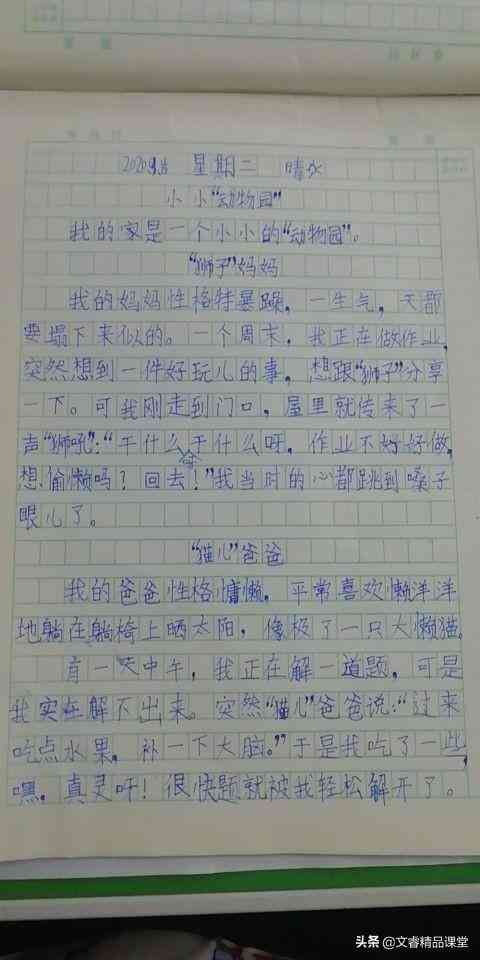 2020.9.8 星期二 晴
小小“动物园”
我的家是一个小小的“动物园”。
“狮子”妈妈
我的妈妈性格特暴躁，一生气，天都
要塌下来似的。一个周末，我正在做作业，
突然想到一件好玩儿的事，想跟“狮子”分享
一下。可我刚走到门口，屋里就传来了一
声“狮吼”：“干什么干什么呀，作业不好好做，
想偷懒吗？回去！”我当时的心都跳到嗓子
眼儿了。
“猫儿”爸爸
我的爸爸性格慵懒，平常喜欢懒洋洋
地躺在躺椅上晒太阳，像极了一只大懒猫。
有一天中午，我正在解一道题，可是
我实在解不出来。突然“猫儿”爸爸说：“过来
吃点水果，补一下大脑。”于是我吃了一些，
嘿，真灵吖！很快题就被我轻松解开了。
头条 @文睿精品课堂